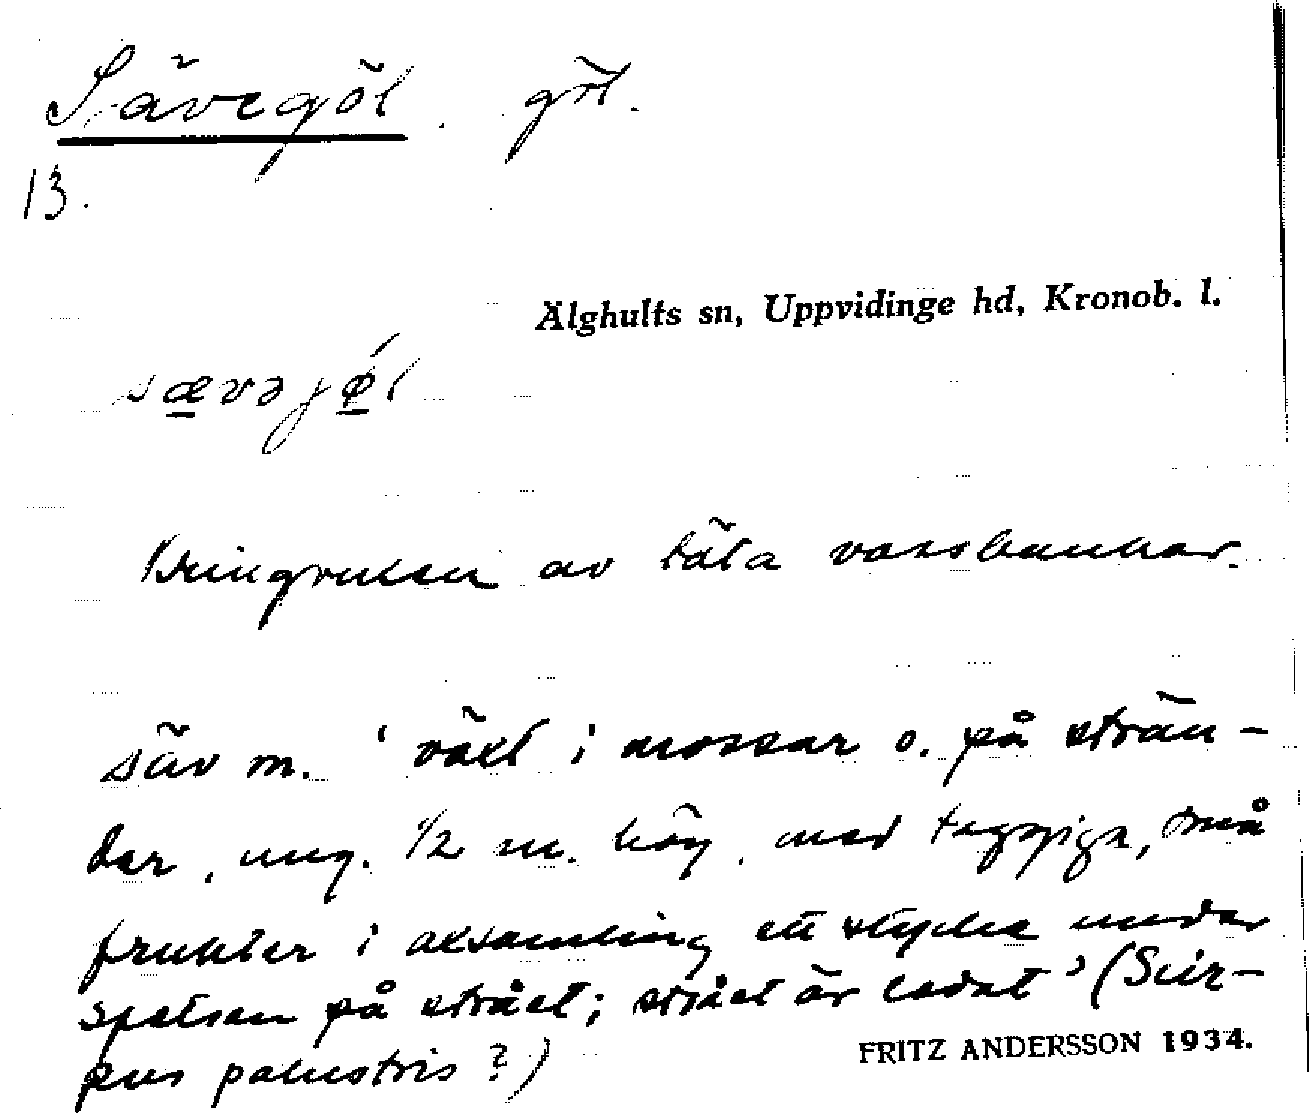 Sävegöl. göl.
13.
Älghults sn, Uppvidinge hd, Kronob. l.
sævəjǿl
Kringvuxen av täta vassbankar.
säv m. 'växt i mossar o. på strän-
der, ung. 1/2 m. hög, med taggiga, små
frukter i axsamling ett stycke under
spetsen på strået; strået är ledat' (Scir-
pus palustris?)
FRITZ ANDERSSON 1934.